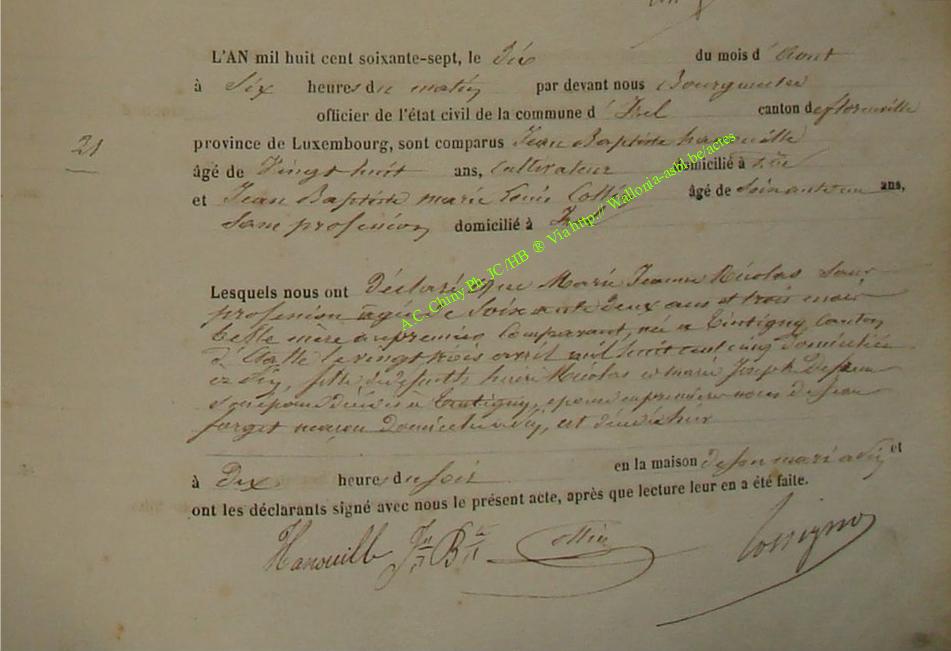 L'AN mil huit cent soixante-sept, le Dix du mois d'Aout
à Six heures du matin par devant nous Bourgmestre
officier de l'état civil de la commune d' canton de florenville
21
province de Luxembourg, sont comparus Jean Baptiste hanouille
âgé de Vingt huit ans, Cultivateur domicilié à
et Jean Baptiste marie Louis Collin âgé de Soixante un ans,
Sans profession domicilié à
A.C. Chiny Ph. JC /HB ® Via http:// Wallonia-asbl.be/actes
Lesquels nous ont Déclaré que Marie Jeanne Nicolas Sans
profession agée de Soixante deux ans et trois mois
belle mère du premier Comparant, née a Tintigny, Canton
d'Etalle le vingt trois avril mil huit cent cinq domiciliée
fille de defunts Nicolas et marie Joseph
Tintigny, epouse en premiere noces de Jean
forget maçon domicilié a est décédée hier
à Dix heures du soir en la maison de son mari a et
ont les déclarants signé avec nous le présent acte, après que lecture leur en a été faite.
Hanouille Jn Bte Collin